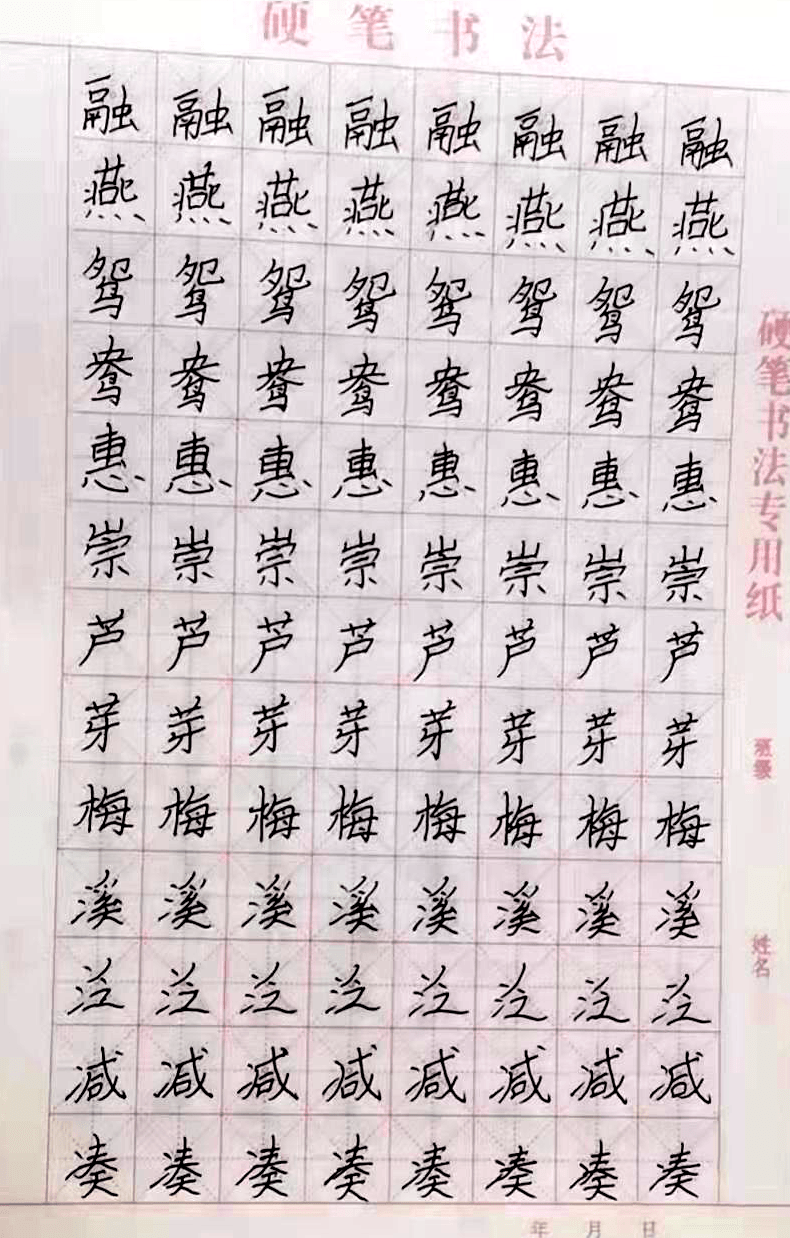 硬笔书法
融融融融融融融融
燕燕燕燕燕燕燕燕
鸳鸳鸳鸳鸳鸳鸳鸳
鸯鸯鸯鸯鸯鸯鸯鸯
惠惠惠惠惠惠惠惠
崇崇崇崇崇崇崇崇
芦芦芦芦芦芦芦芦
芽芽芽芽芽芽芽芽
梅梅梅梅梅梅梅梅
溪溪溪溪溪溪溪溪
泛泛泛泛泛泛泛泛
减减减减减减减减
凑凑凑凑凑凑凑凑
硬笔书法专用纸
班级
姓名
年 月 日